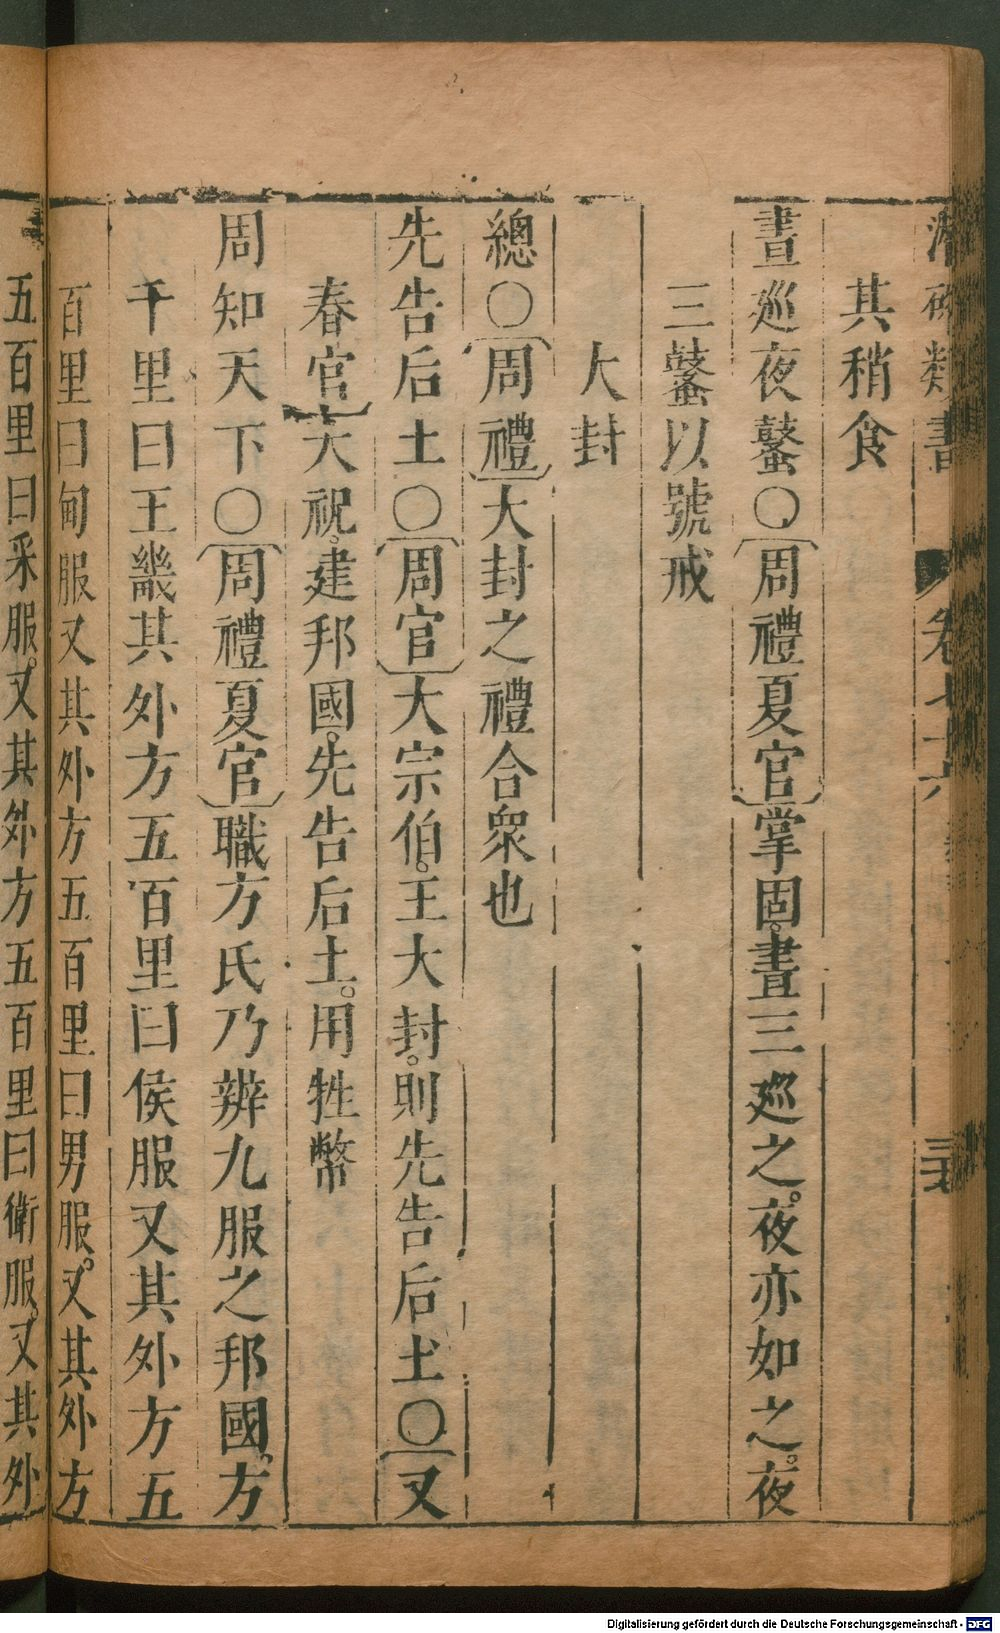 潛確類書 卷七十六 三五
其稍食
晝巡夜鼜〇周禮夏官掌固。晝三巡之。夜亦如之。夜
三鼜以號戒
大封
總〇周禮大封之禮合衆也
先告后土〇周官大宗伯。王大封。則先告后土〇又
春官大祝。建邦國。先告后土。用牲幣
周知天下〇周禮夏官職方氏乃辨九服之邦國。方
千里曰王畿其外方五百里曰侯服又其外方五
百里曰甸服又其外方五百里曰男服。又其外方
五百里曰采服。又其外方五百里曰衛服。又其外
Digitalisierung gefördert durch die Deutsche Forschungsgemeinschaft - DFG